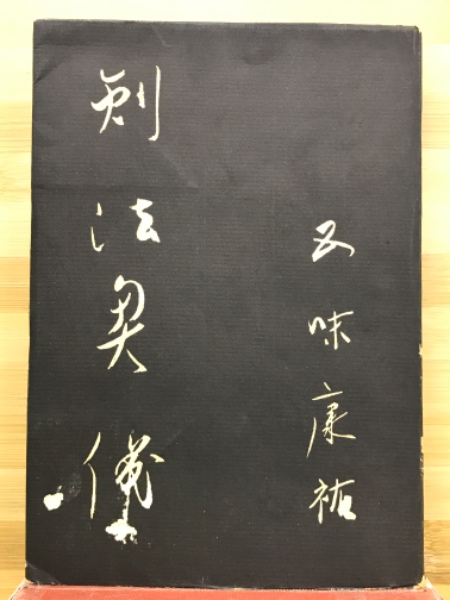 五味康祐
剣法奥儀